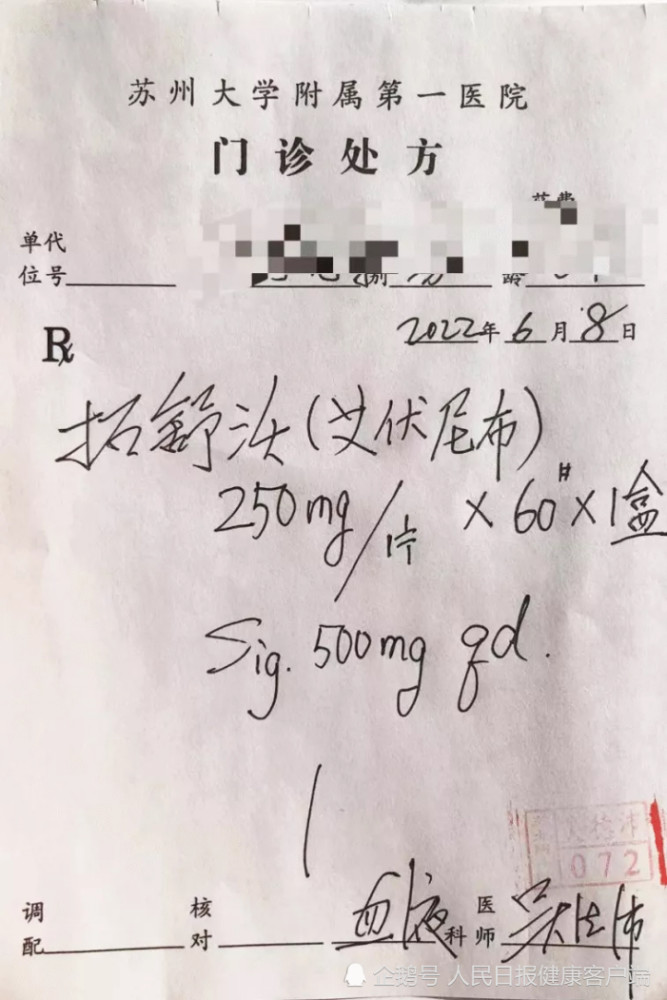 苏州大学附属第一医院
门诊处方
单代
位号 别 龄
R 2022年6月8日
拓舒沃(艾伏尼布)
250mg/1片 × 60# × 1盒
Sig. 500mg qd.
072
调 核 医
配 对 血液科 师
企鹅号 人民日报健康客户端